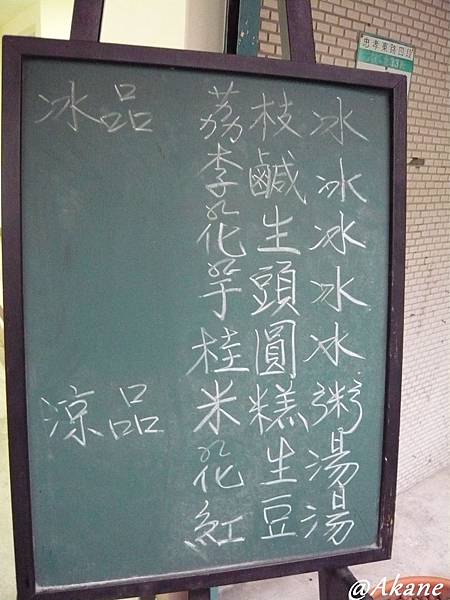 忠孝東路四段
冰品 荔枝冰
李鹹冰
花生冰
芋頭冰
桂圓冰
涼品 米糕粥
花生湯
紅豆湯
@Akane